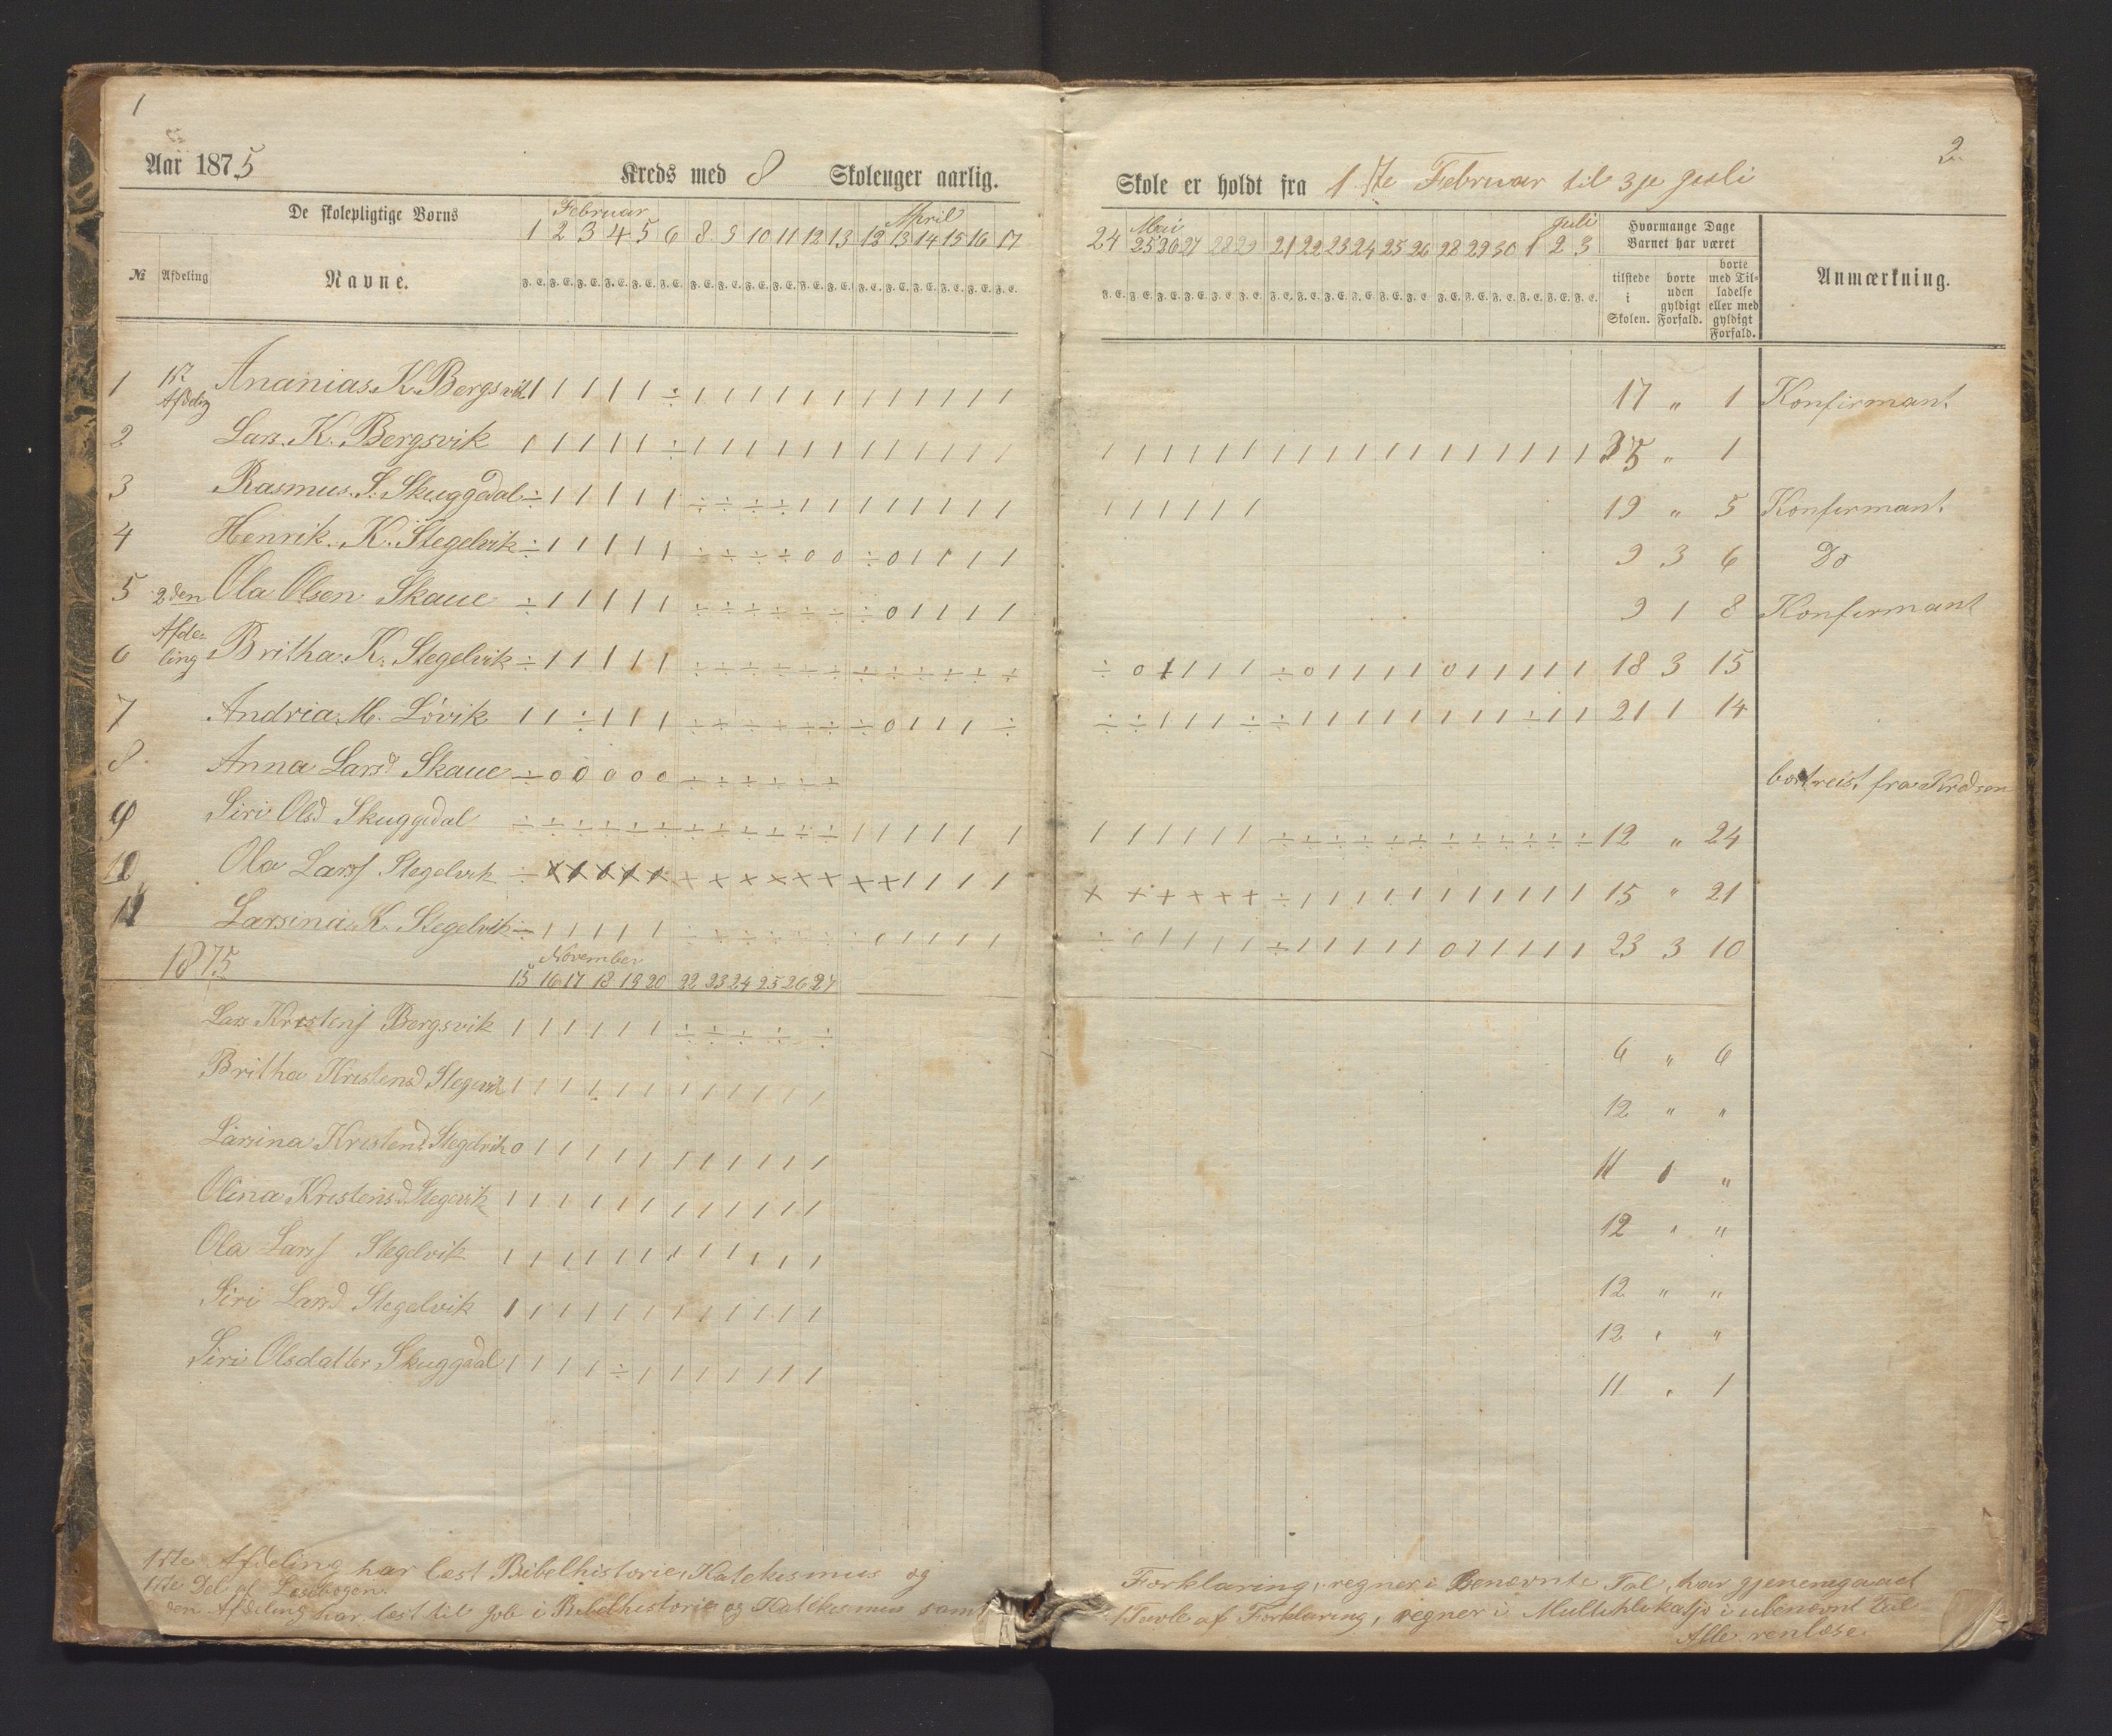 1
Aar 1875
Kreds med 8 Skoleuger aarlig.
De skolepligtige Børns
Februar
April
1 2 3 4 5 6 8 9 10 11 12 13 12 13 14 15 16 17
№ Afdeling Navne.
F. E. F. E. F. E. F. E. F. E. F. E. F. E. F. E. F. E. F. E. F. E. F. E. F. E. F. E. F. E. F. E. F. E. F. E.
1 1st Afdeling Ananias K. Bergsvik 1 1 1 1 1 ÷ 1 1 1 1 1 1 1 1 1 1 1 1
2 Lars. K. Bergsvik 1 1 1 1 1 ÷ 1 1 1 1 1 1 1 1 1 1 1 1
3 Rasmus. S. Skuggedal ÷ 1 1 1 1 1 ÷ ÷ ÷ ÷ 1 1 1 1 1 1 1 1
4 Henrik. K. Stegelvik ÷ 1 1 1 1 1 ÷ ÷ ÷ ÷ 0 0 ÷ 0 1 1 1 1
5 2den Ola Olsen Skaue ÷ 1 1 1 1 1 ÷ ÷ ÷ ÷ ÷ ÷ ÷ 0 1 1 1 1
6 Afdeling Britha. K. Stegelvik ÷ 1 1 1 1 1 ÷ ÷ ÷ ÷ ÷ ÷ ÷ ÷ ÷ ÷ ÷ ÷
7 Andria. M. Lövik 1 1 ÷ 1 1 1 ÷ ÷ ÷ ÷ ÷ ÷ ÷ 0 1 1 1 ÷
8 Anna Larsd Skaue ÷ 0 0 0 0 0 ÷ ÷ ÷ ÷ ÷ ÷
9 Siri Olsd Skuggedal ÷ ÷ ÷ ÷ ÷ ÷ ÷ ÷ ÷ ÷ ÷ ÷ 1 1 1 1 1 1
10 Ola Larss Stegelvik ÷ x x x x x x x x x x x x x 1 1 1 1
11 Larsina. K. Stegelvik ÷ 1 1 1 1 1 ÷ ÷ ÷ ÷ ÷ ÷ ÷ 0 1 1 1 1
1875
November
15 16 17 18 19 20 22 23 24 25 26 27
Lars Kristens Bergsvik 1 1 1 1 1 1 ÷ ÷ ÷ ÷ ÷
Britha Kristensd Stegelvik 1 1 1 1 1 1 1 1 1 1 1 1
Larsina Kristensd Stegelvik 0 1 1 1 1 1 1 1 1 1 1 1
Olina Kristensd Stegelvik 1 1 1 1 1 1 1 1 1 1 1 1
Ola Larss Stegelvik 1 1 1 1 1 1 1 1 1 1 1 1
Siri Larsd Stegelvik 1 1 1 1 1 1 1 1 1 1 1 1
Siri Olsdatter Skuggedal 1 1 1 1 ÷ 1 1 1 1 1 1 1
1ste Afdeling har læst Bibelhistorie, Katekismus og
1ste Del af Læsebogen.
den Afdeling har læst til Job i Bibelhistorie og Katekismus samt
2
Skole er holdt fra 1ste Februar til 3je Juli
Mai
Juli
24 25 26 27 28 29 21 22 23 24 25 26 28 29 30 1 2 3
Hvormange Dage Barnet har været
tilstede i Skolen.
borte uden gyldigt Forfald.
borte med Tilladelse eller med gyldigt Forfald.
Anmærkning.
F. E. F. E. F. E. F. E. F. E. F. E. F. E. F. E. F. E. F. E. F. E. F. E. F. E. F. E. F. E. F. E. F. E. F. E.
17 " 1 Konfirmant
1 1 1 1 1 1 1 1 1 1 1 1 1 1 1 1 1 1 35 " 1
1 1 1 1 1 1 19 " 5 Konfirmant
9 3 6 Do
9 1 8 Konfirmant
÷ 0 1 1 1 1 ÷ 0 1 1 1 1 0 1 1 1 1 1 18 3 15
÷ ÷ 1 1 1 ÷ ÷ 1 1 1 1 1 1 1 1 ÷ 1 1 21 1 14
bortreist fra Kredsen
1 1 1 1 1 1 ÷ ÷ ÷ ÷ ÷ ÷ ÷ ÷ ÷ ÷ ÷ ÷ 12 " 24
x x x x x x ÷ 1 1 1 1 1 1 1 1 1 1 1 15 " 21
÷ 0 1 1 1 1 ÷ 1 1 1 1 1 0 1 1 1 1 1 23 3 10
6 " 6
12 " "
11 1 "
12 " "
12 " "
12 " "
11 " 1
Forklaring, regner i Benævnte Tal, har gjenemgaaet
1 Tavle af Forklaring, regner i Multiplikasjo i ubenævnt Tal
Alle renlæse.